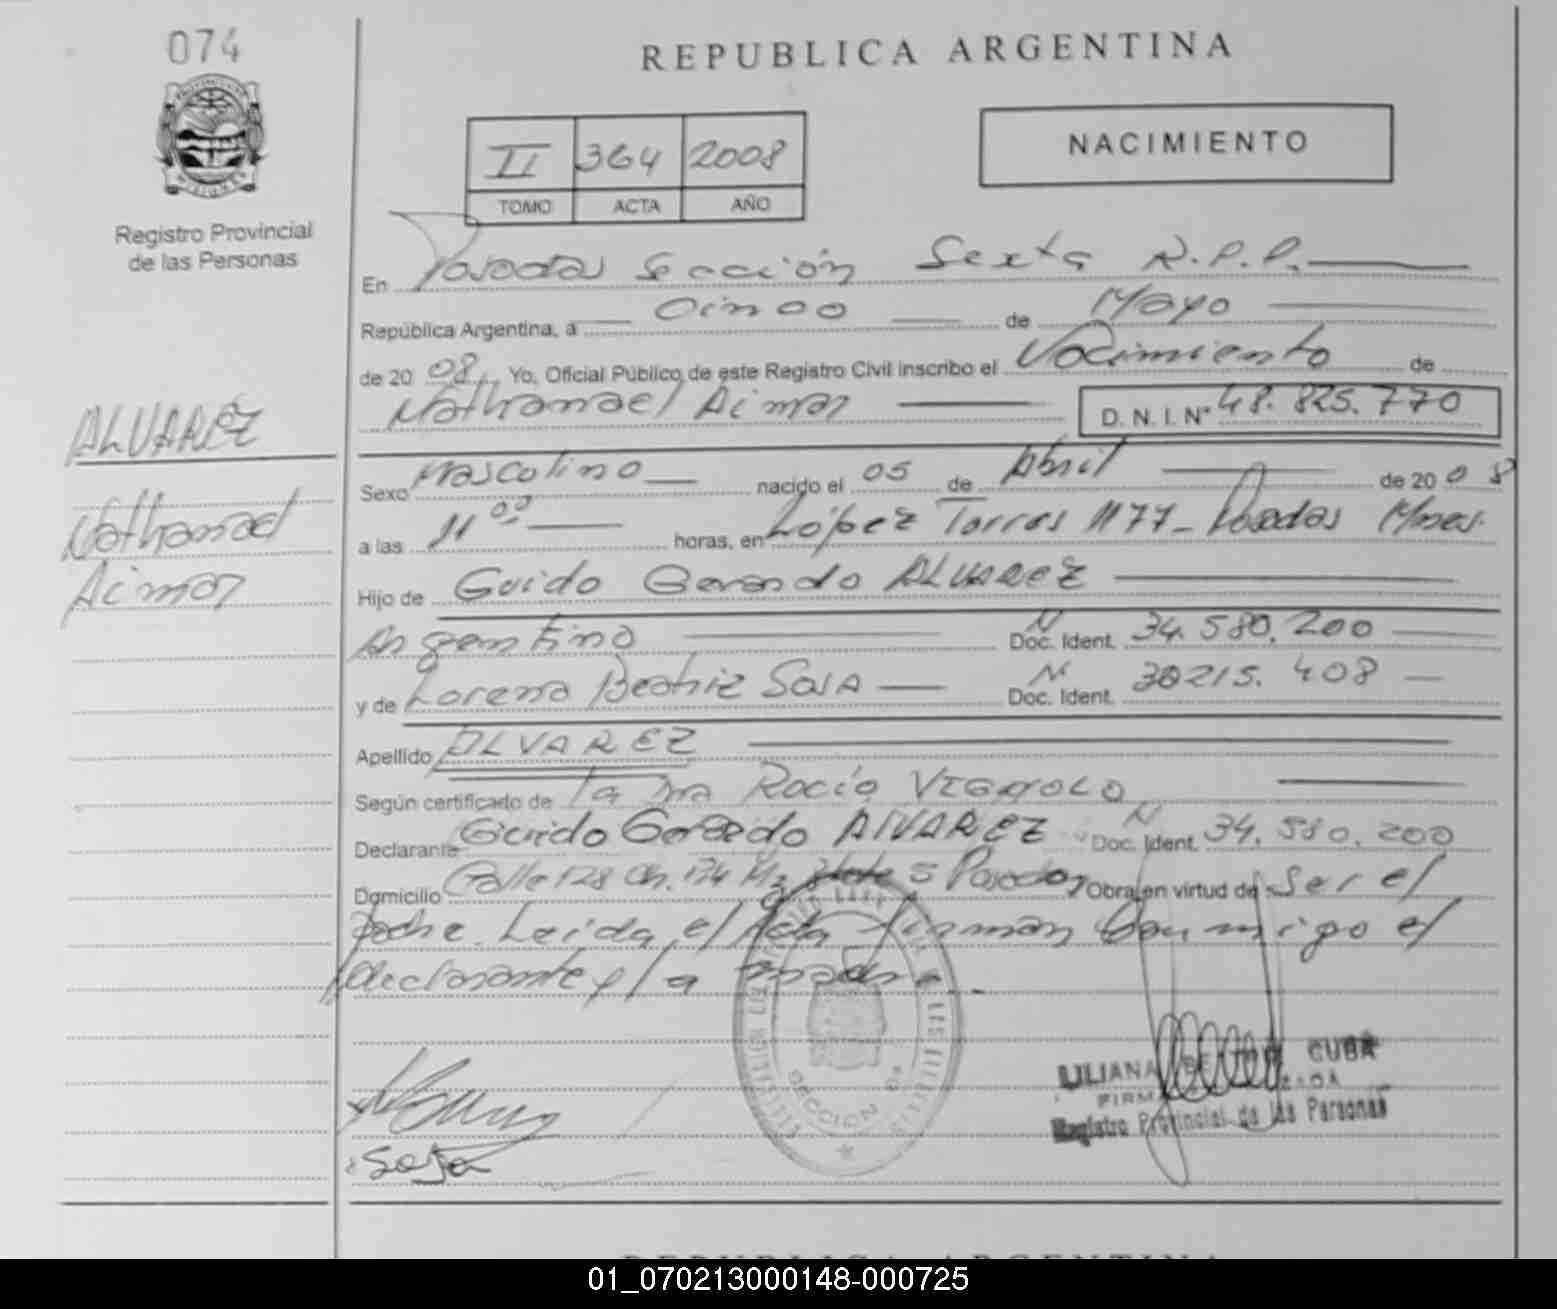 074
REPUBLICA ARGENTINA
NACIMIENTO
II 364 2008
TOMO ACTA AÑO
Registro Provincial
de las Personas
En Posadas Sección Sexta R.P.P.
República Argentina, a Cinco de Mayo
de 20 08, Yo, Oficial Público de este Registro Civil inscribo el Nacimiento de
Nathanael Aimar D. N. I. Nº 48.825.770
ALVAREZ
Nathanael
Aimar
Sexo Masculino nacido el 05 de Abril de 20 08
a las 11 00 horas, en López Torres 1177 - Posadas Mnes.
Hijo de Guido Gerardo ALVAREZ
Argentino N Doc. Ident. 34.580.200
y de Lorena Beatriz SOSA N Doc. Ident. 30215.408
Apellido ALVAREZ
Según certificado de la Dra Rocío VIGNOLO
Declarante Guido Gerardo ALVAREZ N Doc. Ident. 34.580.200
Domicilio Calle 128 Ch. 174 Mz 5 Posadas Obra en virtud de Ser el
padre. Leida el Acta firman conmigo el
declarante y la madre.-
SECCION
LILIANA CUBA
FIRMA
Registro Provincial de las Personas
Sosa
REPUBLICA ARGENTINA
01_070213000148-000725